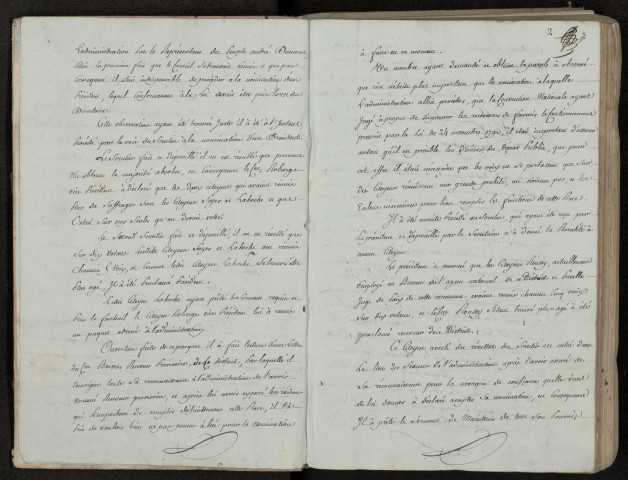 L'administration par le Représentant du Peuple André Dumont
étoit la première fois que le Conseil se trouvoit réuni et que par
conséquent il étoit indispensable de procéder à la nomination d'un
Président, lequel conformément à la loi devoit être pris parmi
Directoire
Cette observation ayant été trouvée juste il a été à l'instant
procédé par la voie du scrutin à la nomination d'un Président.
Le scrutin fait et dépouillé, il en est résulté que personne
n'a obtenu la majorité absolue, en conséquence le Cen Roberge
vice Président a déclaré que les deux citoyens qui avaient réuni
plus de suffrages sont les Citoyens Soyer et Labache et que
C'était sur eux seuls qu'on devoit voter.
Le second Scrutin fait et dépouillé, il en est résulté que
sur dix votans, lesdits Citoyens Soyer et Labache ont réunis
Chacun 5 Voix, et comme ledit Citoyen Labache se trouvoit être
plus agé, Il a été proclamé Président.
Ledit Citoyen Labache ayant prêté les serment requis et
pris le fauteuil le Citoyen Roberge vice Président lui a remis
un paquet adressé à l'administration.
Ouverture faite de ce paquet, il a fait lecture d'une lettre
du Cen Receveur provisoire, de ce District, par laquelle il
témoigne toute sa reconnaissance à l'administration de l'avoir
nommé Receveur provisoire, et après lui avoir exposé les raisons
qui l'empêchent de remplir définitivement cette Place, il l'a
prié de vouloir bien ne pas penser à lui pour la nomination
2
à faire en ce moment.
Un membre ayant demandé et obtenu la parole a observé
que rien n'étoit plus important que la nomination à laquelle
L'administration alloit procéder, que la Convention Nationale ayant
Jugé à propos de dispenser les receveurs de fournir le cautionnement
prescrit par la loi du 24 novembre 1790, il étoit important d'assurer
autant qu'il est possible les Deniers du Trésor public, que pour
cet effet il étoit nécessaire que les voix ne se portassent que sur
des Citoyens réunissant une grande probité, un civisme pur et les
talens nécessaires pour bien remplir les fonctions de cette Place.
Il a été ensuite procédé au scrutin, qui ayant été reçu par
Le président et dépouillé par le Secrétaire n'a donné la Pluralité à
aucun Citoyen.
Le président a annoncé que les Citoyens
employé au Bureau de l'agent national du District, et
Juge de Paix de cette commune, avaient réunis chacun cinq voix
sur dix votans, et le Cen s'étant trouvé plus agé a été
proclamé receveur du District.
Ce Citoyen averti du résultat du scrutin est entré dans
Le lieu des séances de l'administration, après l'avoir assuré de
sa reconnaissance pour la marque de confiance qu'elle vient
de lui donner a déclaré accepter sa nomination, en conséquence
Il a prêté le serment de Maintenir de tout son pouvoir